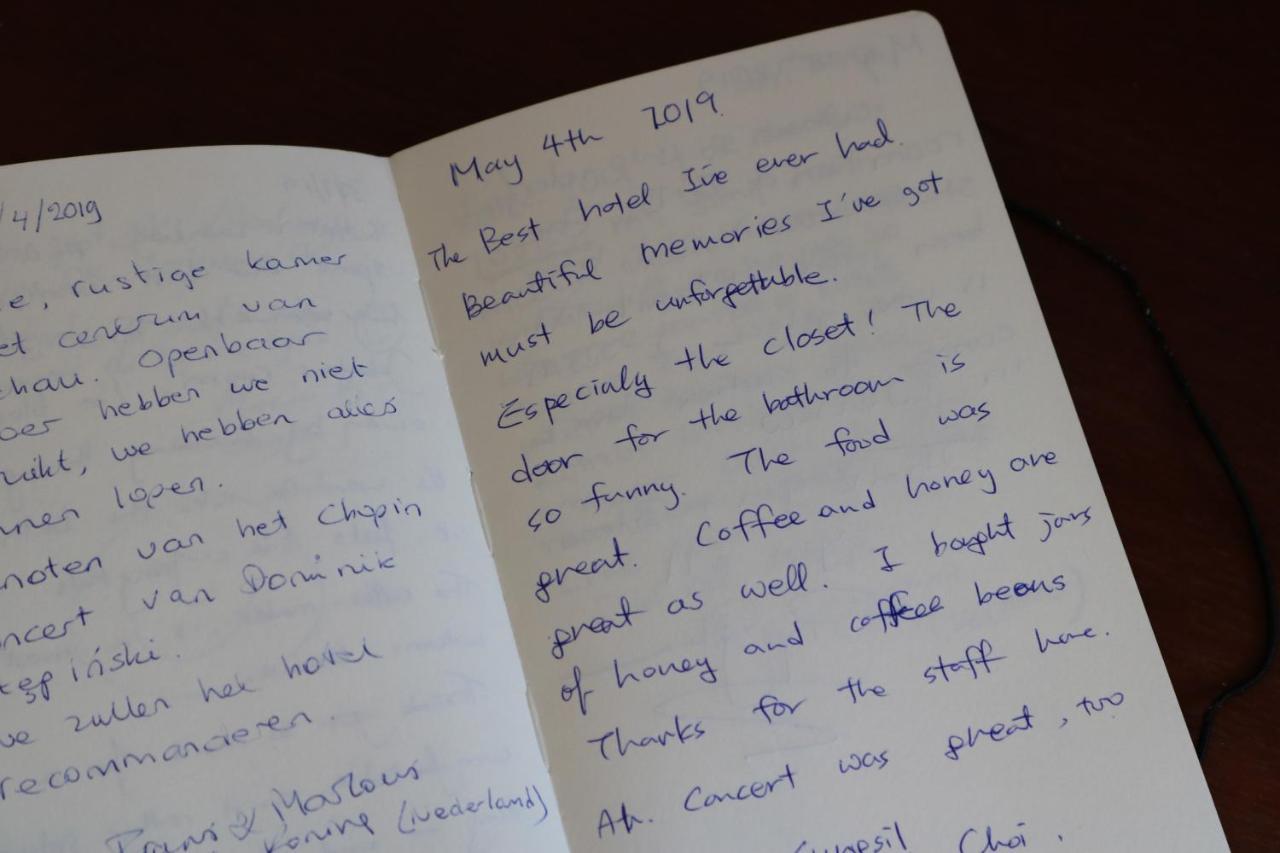 /4/2019
e, rustige kamer
et centrum van
chau. Openbaar
oer hebben we niet
ruikt, we hebben alles
nnen lopen.
noten van het Chopin
ncert van Dominik
tępiński.
we zullen het hotel
recommanderen.
& Marlous
Koning (Nederland)
May 4th 2019
The Best hotel I've ever had.
Beautiful memories I've got
must be unforgettable.
Especialy the closet! The
door for the bathroom is
so funny. The food was
great. Coffee and honey are
great as well. I bought jars
of honey and coffee beans
Thanks for the staff here.
Ah. Concert was great, too
Choi.